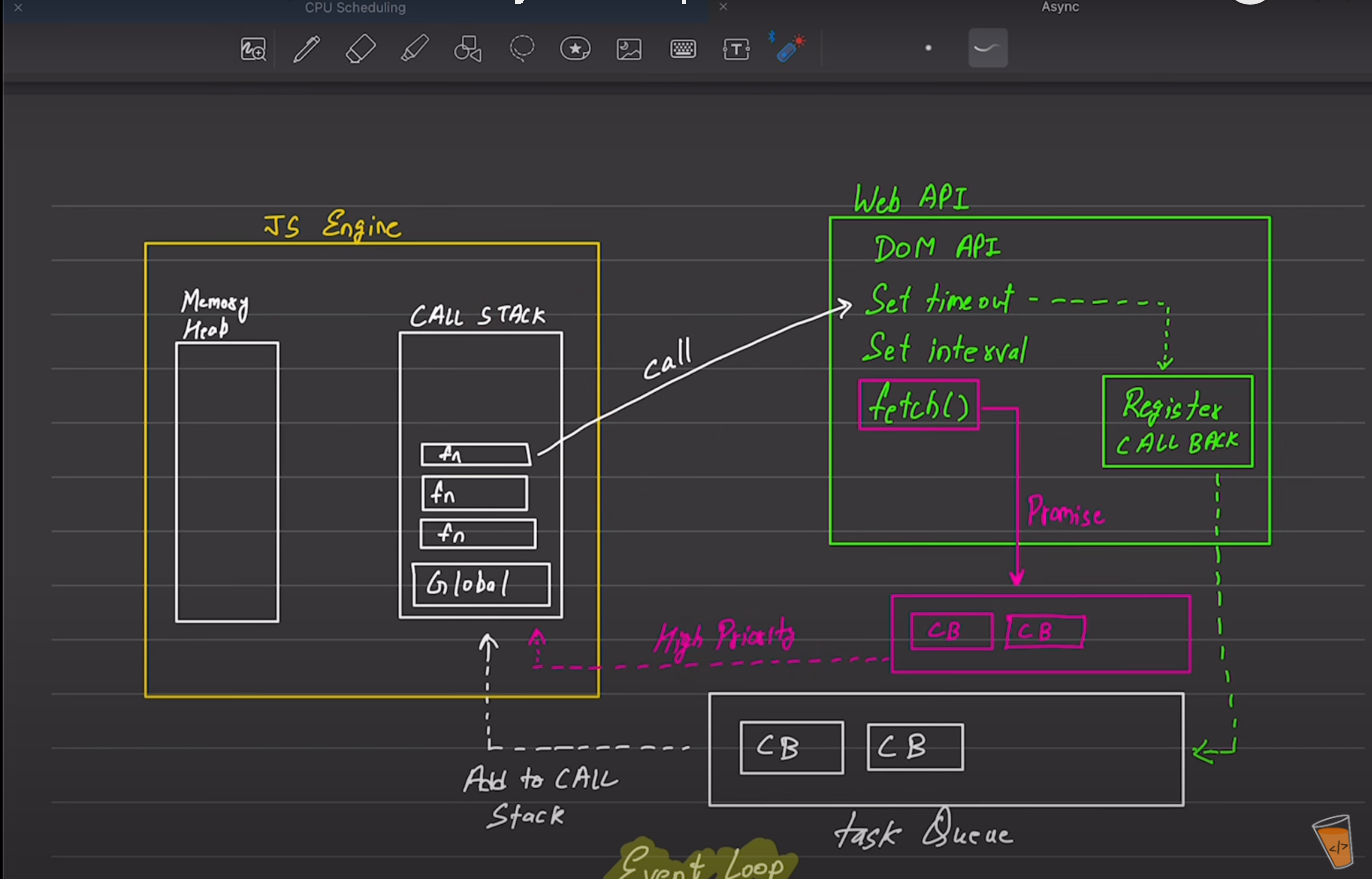 CPU Scheduling
Async
JS Engine
Memory
Heab
CALL STACK
fn
fn
fn
Global
call
Web API
DOM API
Set timeout
Set interval
fetch()
Register
CALL BACK
Promise
CB
CB
High Priority
CB
CB
Add to CALL
Stack
task Queue
Event Loop